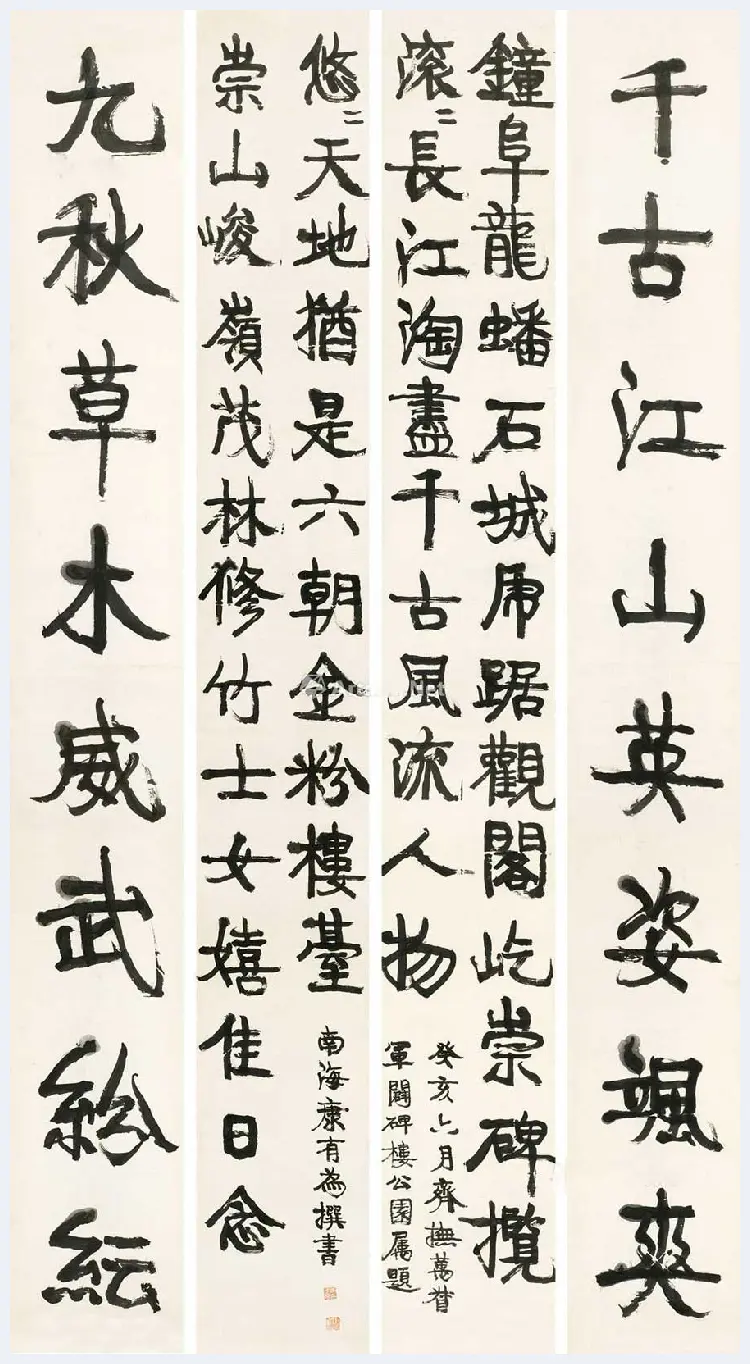 千古江山英姿颯爽
鐘阜龍蟠石城虎踞觀閣屹崇碑攬
滚〻長江淘盡千古風流人物
癸亥六月齊撫萬督
軍闢碑樓公園屬題
崇山峻嶺茂林修竹士女嬉佳日念
悠〻天地猶是六朝金粉樓臺
南海康有為撰書
九秋草木威武紛紜